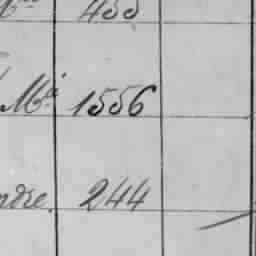 455
Mª 1556
ndre. 244